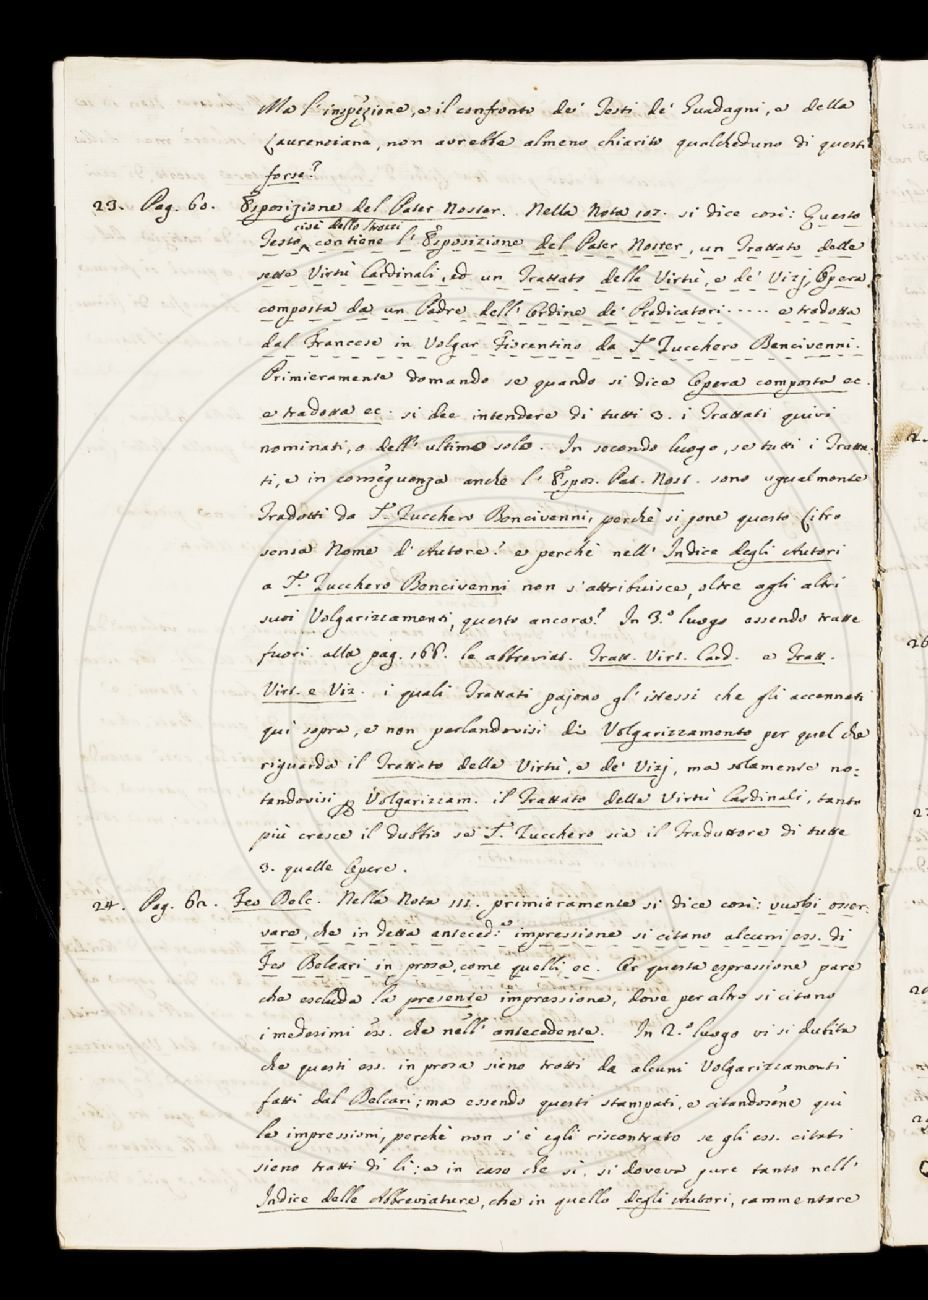 Ma l'inspezione, e il confronto de' Testi de' Guadagni, e della
Laurenziana, non avrebbe almeno chiarito qualcheduno di questi
forse?
23. Pag. 60. Esposizione del Pater Noster. Nella Nota 107. si dice così: Questo
cioè dello Strozzi
Testo contiene l'Esposizione del Pater Noster, un Trattato delle
sette Virtù Cardinali, ed un Trattato delle Virtù, e de' Vizj, Opera
composta da un Padre dell'Ordine de' Predicatori ..... e tradotta
dal Francese in Volgar Fiorentino da S. Zucchero Bencivenni.
Primieramente domando se quando si dice Opera composta ec.
e tradotta ec. si dee intendere di tutti 3. i Trattati quivi
nominati, o dell'ultimo solo. In secondo luogo, se tutti i Tratta-
ti, e in conseguenza anche l'Espos. Pat. Nost. sono ugualmente
Tradotti da S. Zucchero Bencivenni, perchè si pone questo Libro
senza Nome d'Autore? e perchè nell'Indice degli Autori
a S. Zucchero Bencivenni non s'attribuisce, oltre agli altri
suoi Volgarizzamenti, questo ancora? In 3.° luogo essendo tratte
fuori alla pag. 166. le abbreviat. Tratt. Virt. Card. e Tratt.
Virt. e Viz. i quali Trattati pajono gl'istessi che gli accennati
qui sopra, e non parlandovisi di Volgarizzamento per quel che
riguarda il Trattato delle Virtù, e de' Vizj, ma solamente no-
tandovisi Volgarizzam. il Trattato delle Virtù Cardinali, tanto
più cresce il dubbio se S. Zucchero sia il Traduttore di tutte
3. quelle Opere.
24. Pag. 62. Feo Belc. Nella Nota 111. primieramente si dice così: vuolsi osser-
vare, che in detta anteced.e impressione si citano alcuni ess. di
Feo Belcari in prosa, come quelli ec. Or questa espressione pare
che escluda la presente impressione, dove per altro si citano
i medesimi ess. che nell'antecedente. In 2.° luogo vi si dubita
che questi ess. in prosa sieno tratti da alcuni Volgarizzamenti
fatti dal Belcari; ma essendo questi stampati, e citandosene qui
le impressioni, perchè non s'è egli riscontrato se gli ess. citati
sieno tratti di lì; e in caso che sì, si doveva pure tanto nell'
Indice delle Abbreviature, che in quello degli Autori, rammentare